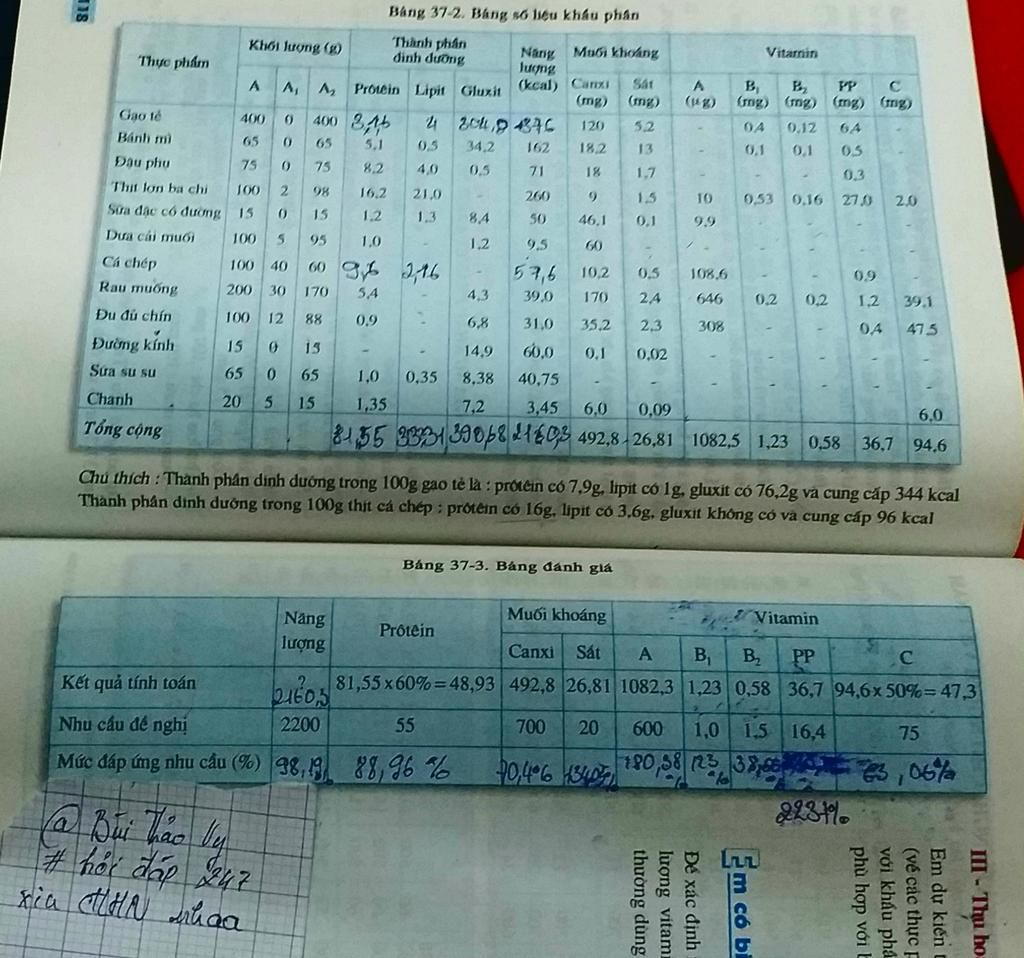 118
Bảng 37-2. Bảng số liệu khẩu phần
Thực phẩm Khối lượng (g) Thành phần dinh dưỡng Năng lượng (kcal) Muối khoáng Vitamin
A A₁ A₂ Prôtêin Lipit Gluxit Canxi (mg) Sắt (mg) A (µg) B₁ (mg) B₂ (mg) PP (mg) C (mg)
Gạo tẻ 400 0 400 31,6 4 304,8 1376 120 5,2 - 0,4 0,12 6,4 -
Bánh mì 65 0 65 5,1 0,5 34,2 162 18,2 13 - 0,1 0,1 0,5 -
Đậu phụ 75 0 75 8,2 4,0 0,5 71 18 1,7 - - - 0,3 -
Thịt lợn ba chỉ 100 2 98 16,2 21,0 - 260 9 1,5 10 0,53 0,16 27,0 2,0
Sữa đặc có đường 15 0 15 1,2 1,3 8,4 50 46,1 0,1 9,9 - - - -
Dưa cải muối 100 5 95 1,0 - 1,2 9,5 60 - - - - - -
Cá chép 100 40 60 9,6 2,16 - 57,6 10,2 0,5 108,6 - - 0,9 -
Rau muống 200 30 170 5,4 - 4,3 39,0 170 2,4 646 0,2 0,2 1,2 39,1
Đu đủ chín 100 12 88 0,9 - 6,8 31,0 35,2 2,3 308 - - 0,4 47,5
Đường kính 15 0 15 - - 14,9 60,0 0,1 0,02 - - - - -
Sữa su su 65 0 65 1,0 0,35 8,38 40,75 - - - - - - -
Chanh 20 5 15 1,35 7,2 3,45 6,0 0,09 6,0
Tổng cộng 81,55 33,31 390,68 2160,3 492,8 26,81 1082,5 1,23 0,58 36,7 94,6
Chú thích : Thành phần dinh dưỡng trong 100g gạo tẻ là : prôtêin có 7,9g, lipit có 1g, gluxit có 76,2g và cung cấp 344 kcal
Thành phần dinh dưỡng trong 100g thịt cá chép : prôtêin có 16g, lipit có 3,6g, gluxit không có và cung cấp 96 kcal
Bảng 37-3. Bảng đánh giá
Năng lượng Prôtêin Muối khoáng Vitamin
Canxi Sắt A B₁ B₂ PP C
Kết quả tính toán ? 2160,3 81,55 x 60% = 48,93 492,8 26,81 1082,3 1,23 0,58 36,7 94,6 x 50% = 47,3
Nhu cầu đề nghị 2200 55 700 20 600 1,0 1,5 16,4 75
Mức đáp ứng nhu cầu (%) 98,19% 88,96 % 70,4% 134,05% 180,38 % 123 % 38,66 % 63,06%
223,7%
@ Bùi Thảo Vy
# hỏi đáp 247
xin CTHHN nhaa
III - Thu ho
Em dự kiến t
(về các thực p
với khẩu phầ
phù hợp với
Em có bi
Để xác định
lượng vitami
thường dùng